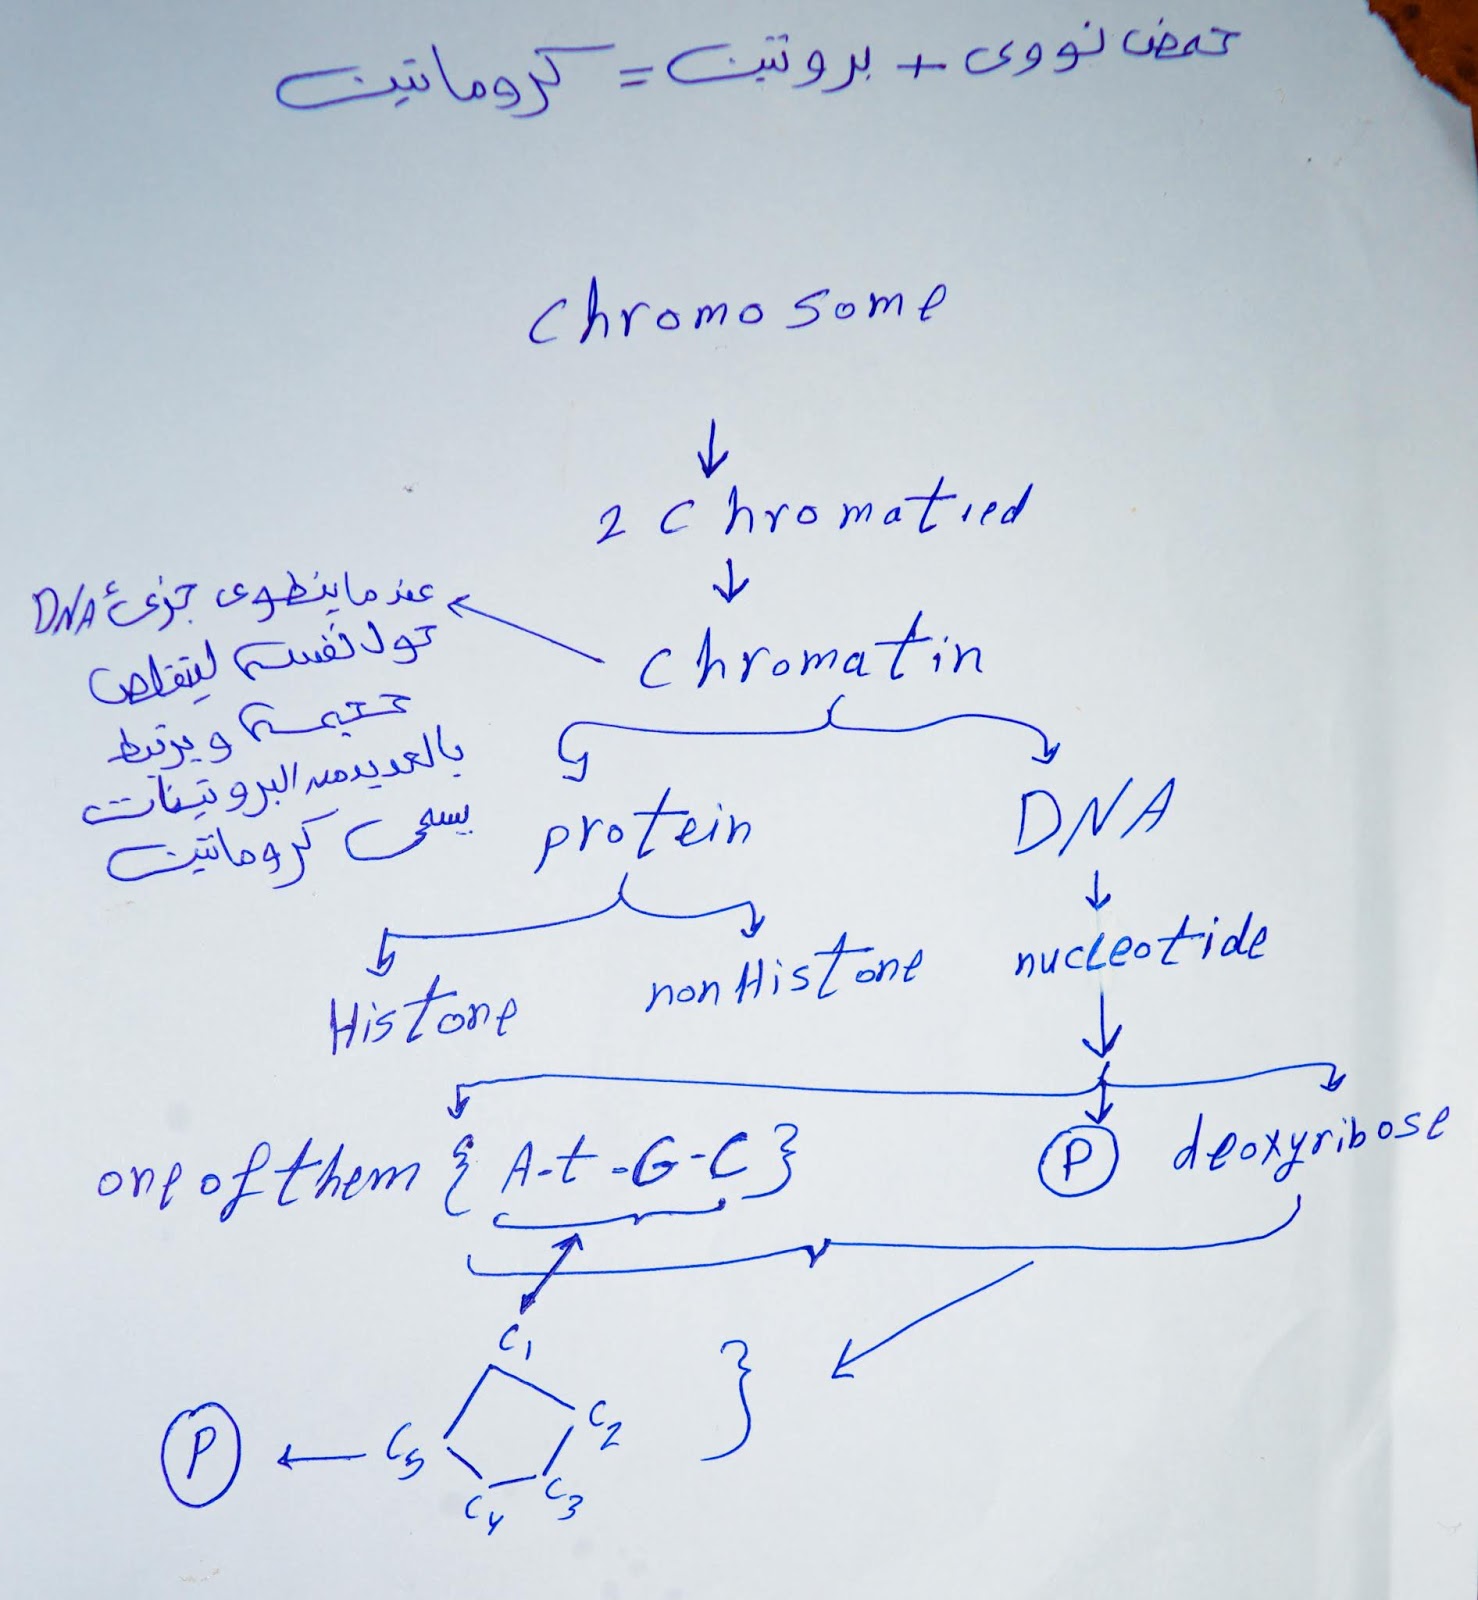 حمض نووى + بروتين = كروماتين
chromosome
2 chromatied
chromatin
عندما ينطوى جزئ DNA
حول نفسه ليتقلص
حجمه ويرتبط
بالعديد من البروتينات
يسمى كروماتين
protein
DNA
Histone
nonHistone
nucleotide
one of them { A-t-G-C }
P
deoxyribose
C1
C2
C3
C4
C5
P